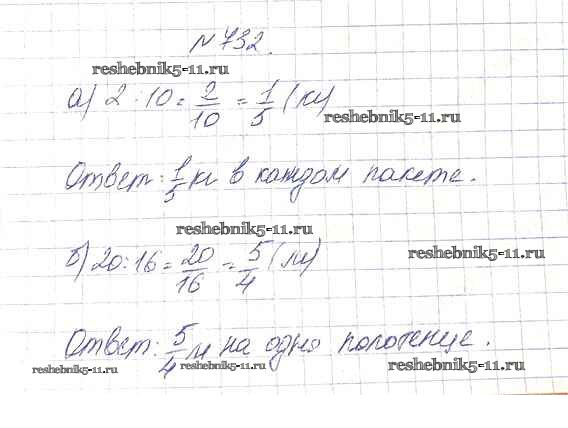 №732.
reshebnik5-11.ru
а) 2 : 10 = 2/10 = 1/5 (кг)
reshebnik5-11.ru
Ответ: 1/5 кг в каждом пакете.
reshebnik5-11.ru
reshebnik5-11.ru
б) 20 : 16 = 20/16 = 5/4 (м)
Ответ: 5/4 м на одно полотенце.
reshebnik5-11.ru reshebnik5-11.ru reshebnik5-11.ru